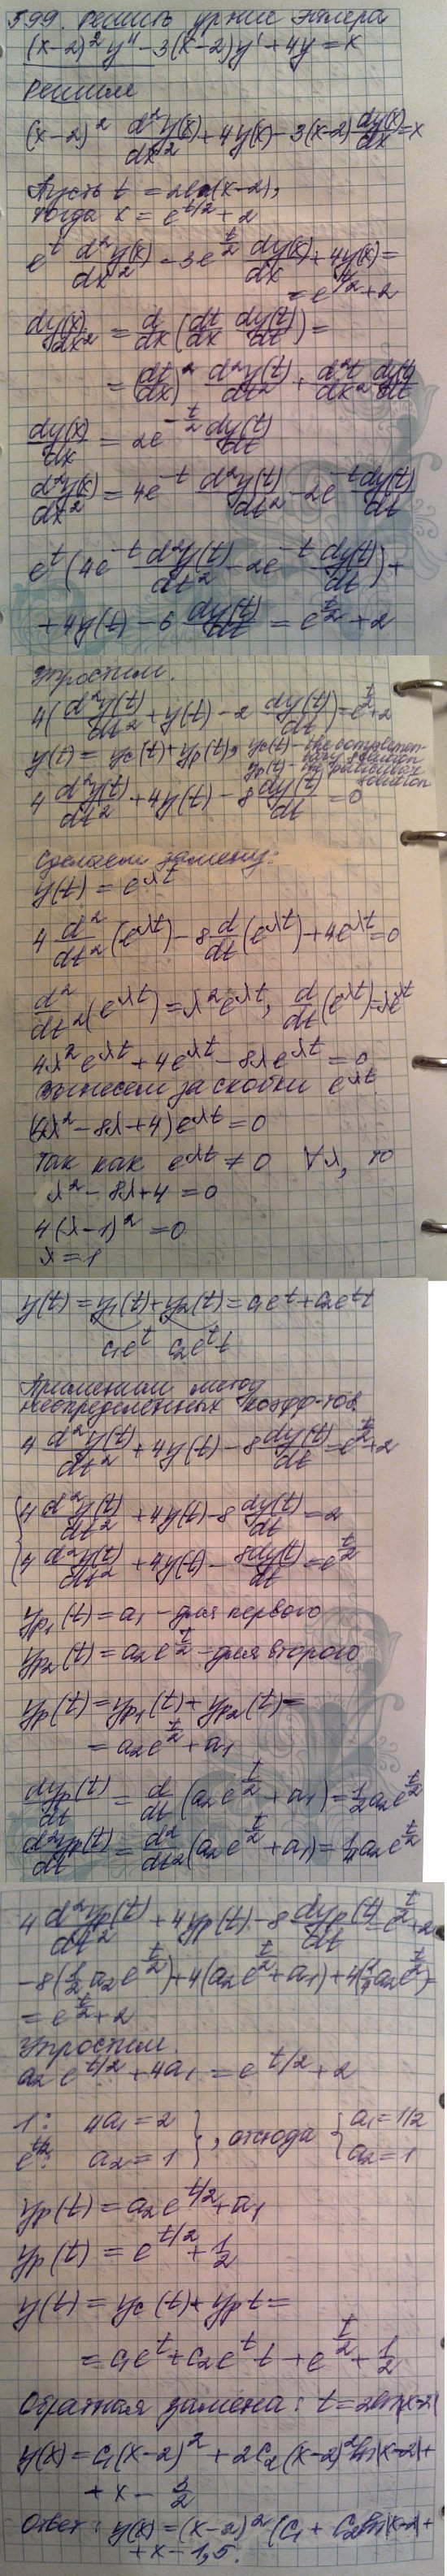 599. Решить ур-ние Эйлера
(x-2)²y'' - 3(x-2)y' + 4y = x
Решим
(x-2)² d²y(x)/dx² + 4y(x) - 3(x-2) dy(x)/dx = x
Пусть t = 2ln(x-2),
тогда x = e^{t/2} + 2
e^t d²y(x)/dx² - 3e^{t/2} dy(x)/dx + 4y(x) =
= e^{t/2} + 2
dy(x)/dx² = d/dx (dt/dx dy(t)/dt) =
= (dt/dx)² d²y(t)/dt² + d²t/dx² dy(t)/dt
dy(x)/dx = 2e^{-t/2} dy(t)/dt
d²y(x)/dx² = 4e^{-t} d²y(t)/dt² - 2e^{-t} dy(t)/dt
e^t (4e^{-t} d²y(t)/dt² - 2e^{-t} dy(t)/dt) +
+ 4y(t) - 6 dy(t)/dt = e^{t/2} + 2
Упростим.
4(d²y(t)/dt² + y(t) - 2 dy(t)/dt) = e^{t/2} + 2
y(t) = yc(t) + yp(t), yc(t) - the complemen-
tary solution
yp(t) - the particular
solution
4 d²y(t)/dt² + 4y(t) - 8 dy(t)/dt = 0
Сделаем замену:
y(t) = e^{λt}
4 d²/dt² (e^{λt}) - 8 d/dt (e^{λt}) + 4e^{λt} = 0
d²/dt² (e^{λt}) = λ²e^{λt}, d/dt (e^{λt}) = λe^{λt}
4λ²e^{λt} + 4e^{λt} - 8λe^{λt} = 0
Вынесем за скобки e^{λt}
(4λ² - 8λ + 4)e^{λt} = 0
Так как e^{λt} ≠ 0 ∀λ, то
λ² - 8λ + 4 = 0
4(λ-1)² = 0
λ = 1
y(t) = y1(t) + y2(t) = c1e^t + c2e^t t
c1e^t c2e^t t
Применим метод
неопределенных коэфф-тов
4 d²y(t)/dt² + 4y(t) - 8 dy(t)/dt = e^{t/2} + 2
{ 4 d²y(t)/dt² + 4y(t) - 8 dy(t)/dt = 2
4 d²y(t)/dt² + 4y(t) - 8dy(t)/dt = e^{t/2}
yp1(t) = a1 - для первого
yp2(t) = a2e^{t/2} - для второго
yp(t) = yp1(t) + yp2(t) =
= a2e^{t/2} + a1
dyp(t)/dt = d/dt (a2e^{t/2} + a1) = 1/2 a2e^{t/2}
d²yp(t)/dt = d²/dt² (a2e^{t/2} + a1) = 1/4 a2e^{t/2}
4 d²yp(t)/dt² + 4yp(t) - 8 dyp(t)/dt = e^{t/2} + 2
-8(1/2 a2e^{t/2}) + 4(a2e^{t/2} + a1) + 4(1/4 a2e^{t/2}) =
= e^{t/2} + 2
Упростим.
a2e^{t/2} + 4a1 = e^{t/2} + 2
1: 4a1 = 2 } , отсюда { a1 = 1/2
e^{t/2}: a2 = 1 } { a2 = 1
yp(t) = a2e^{t/2} + a1
yp(t) = e^{t/2} + 1/2
y(t) = yc(t) + ypt =
= c1e^t + c2e^t t + e^{t/2} + 1/2
Обратная замена: t = 2ln|x-2|
y(x) = c1(x-2)² + 2c2(x-2)²ln|x-2| +
+ x - 3/2
Ответ: y(x) = (x-2)²(c1 + c2ln|x-2| +
+ x - 1,5.